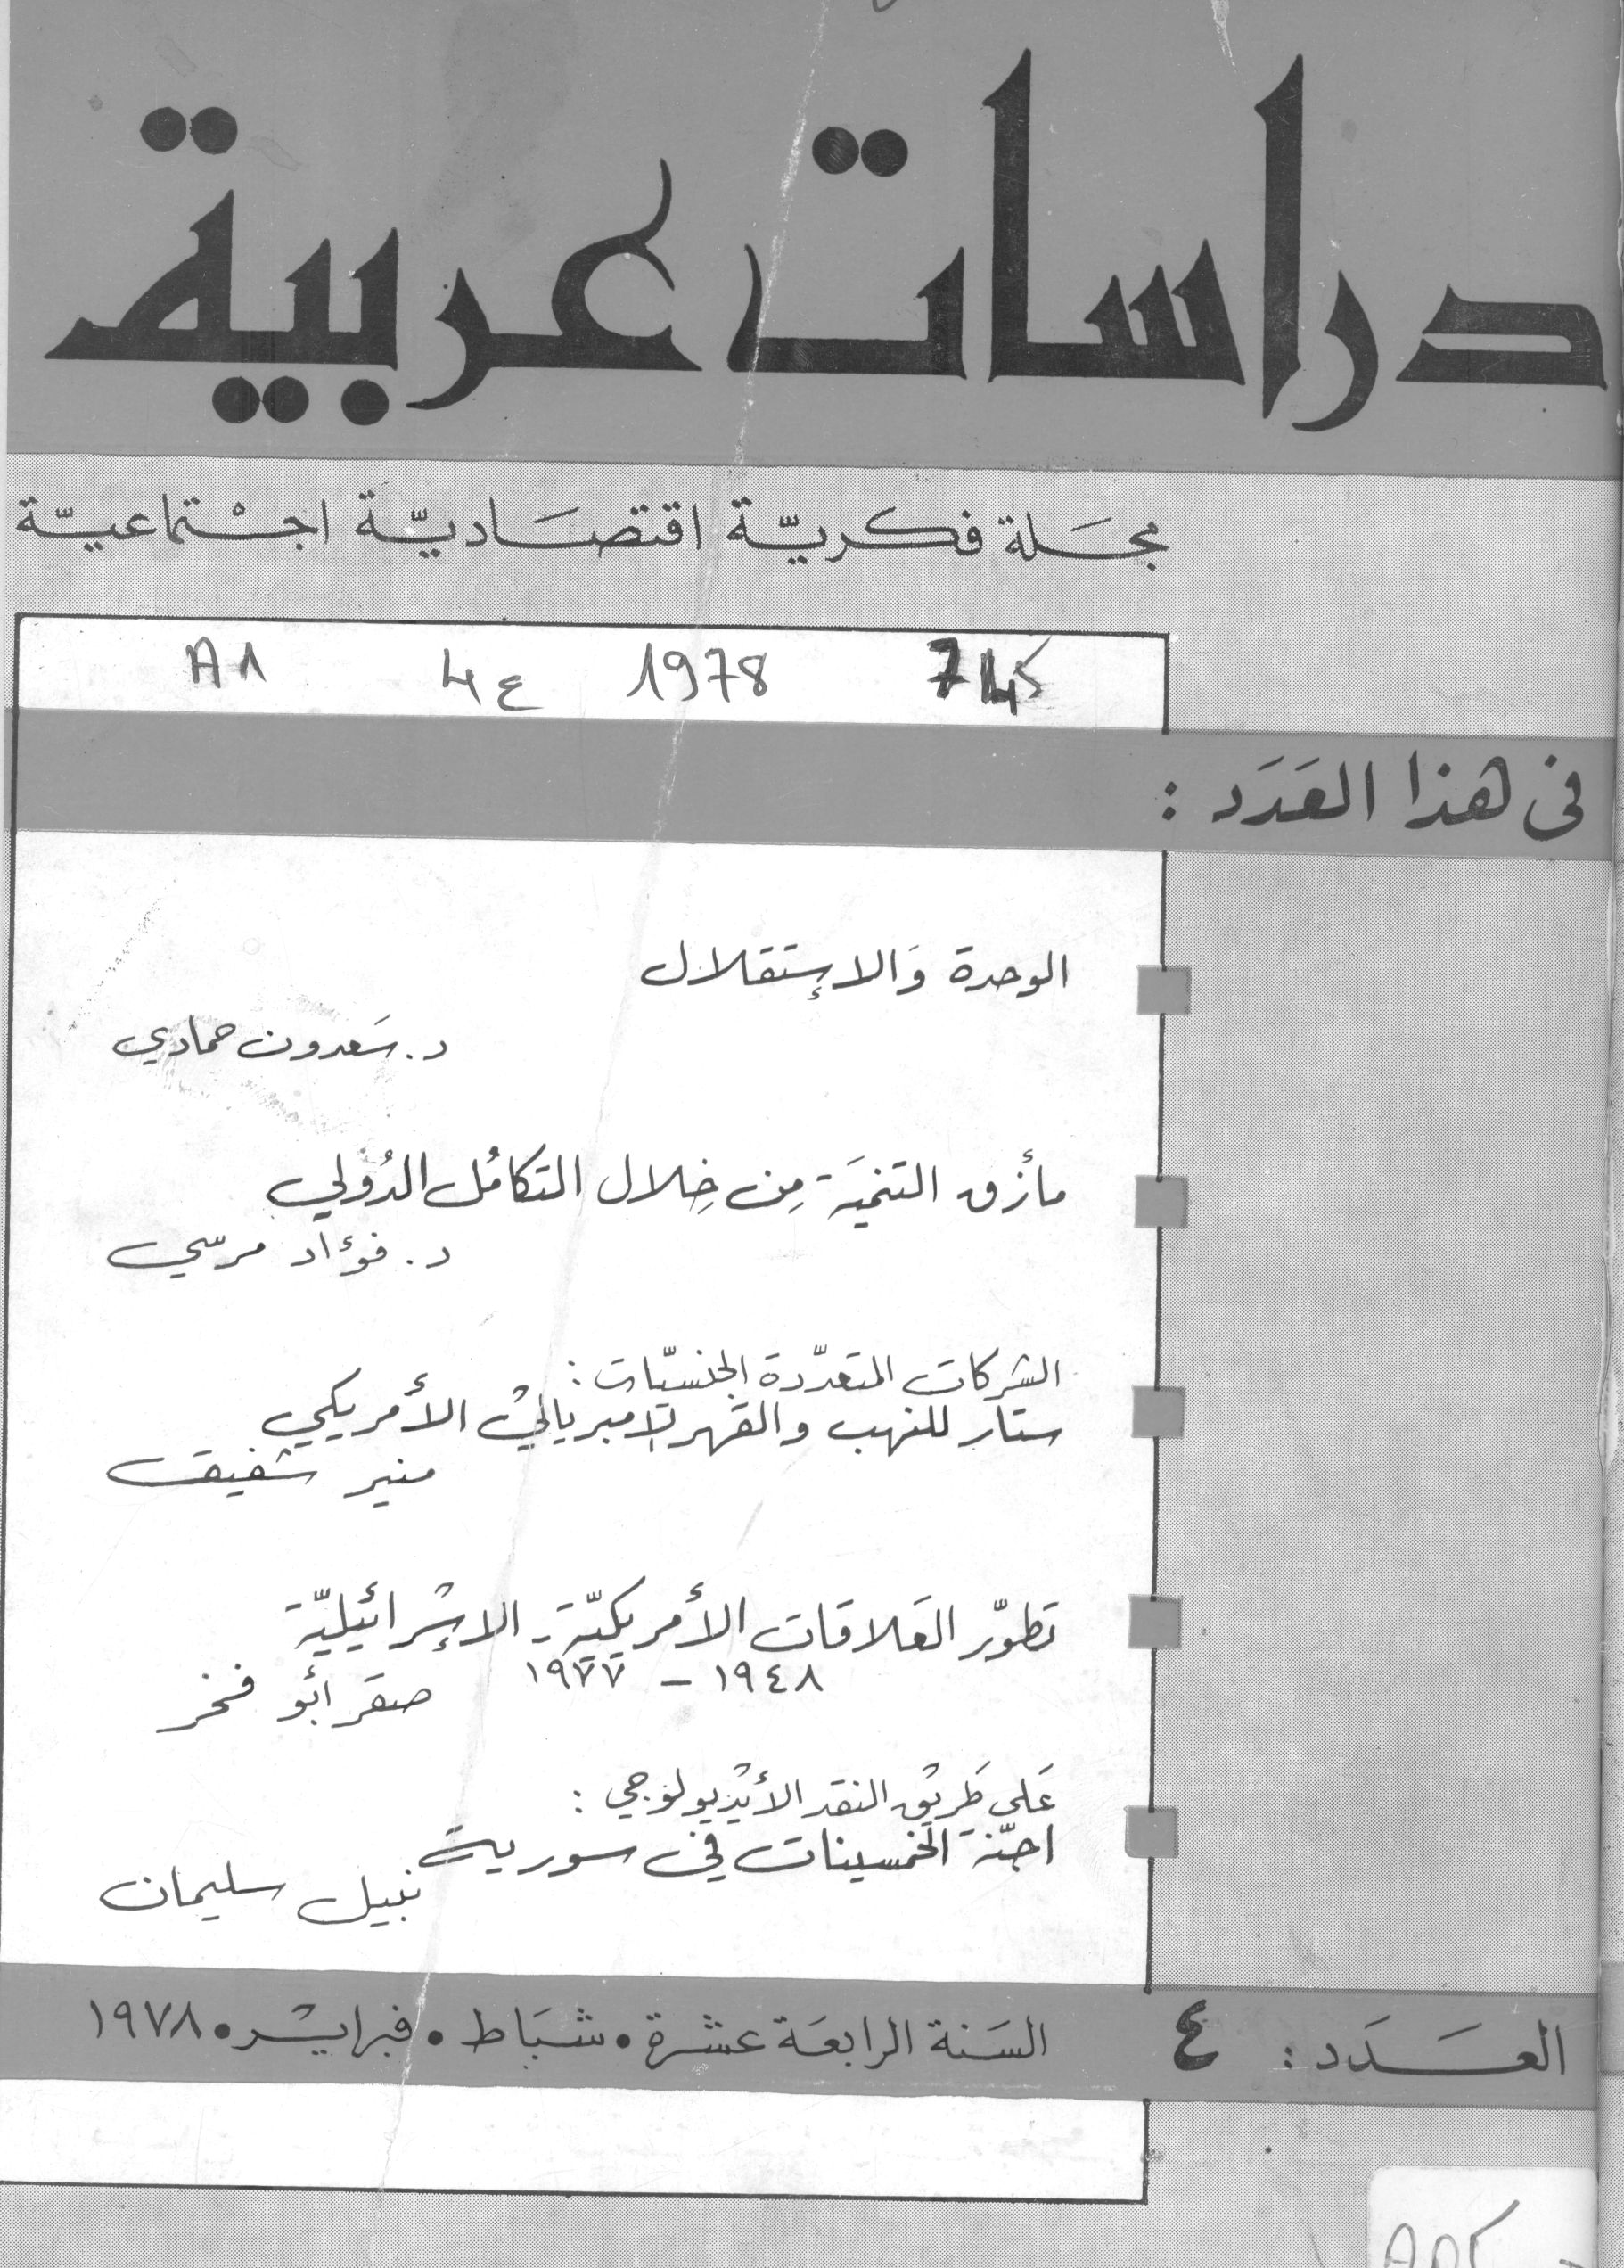 دراسات عربية
مجَلة فكريّة اقتصَاديّة اجتماعيّة
1978 4ع A1
في هذا العَدَد :
الوحدة وَالإستقلال
د. سَعدون حمادي
مأزق التنميَة مِن خِلال التكامُل الدُولي
د. فؤاد مرسي
الشركات المتعدّدة الجنسيّات :
ستار للنهب والقهر الامبريالي الأمريكي
منير شفيق
تطوّر العَلاقات الأمريكيّة - الإسرائيليّة
١٩٤٨ - ١٩٧٧
صقر أبو فخر
عَلى طَريق النقد الأيديولوجي :
اجنّة الخمسينات في سورية
نبيل سليمان
العَـدَد : ٤ السَنة الرابعَة عشرة • شبَاط • فبراير • ١٩٧٨